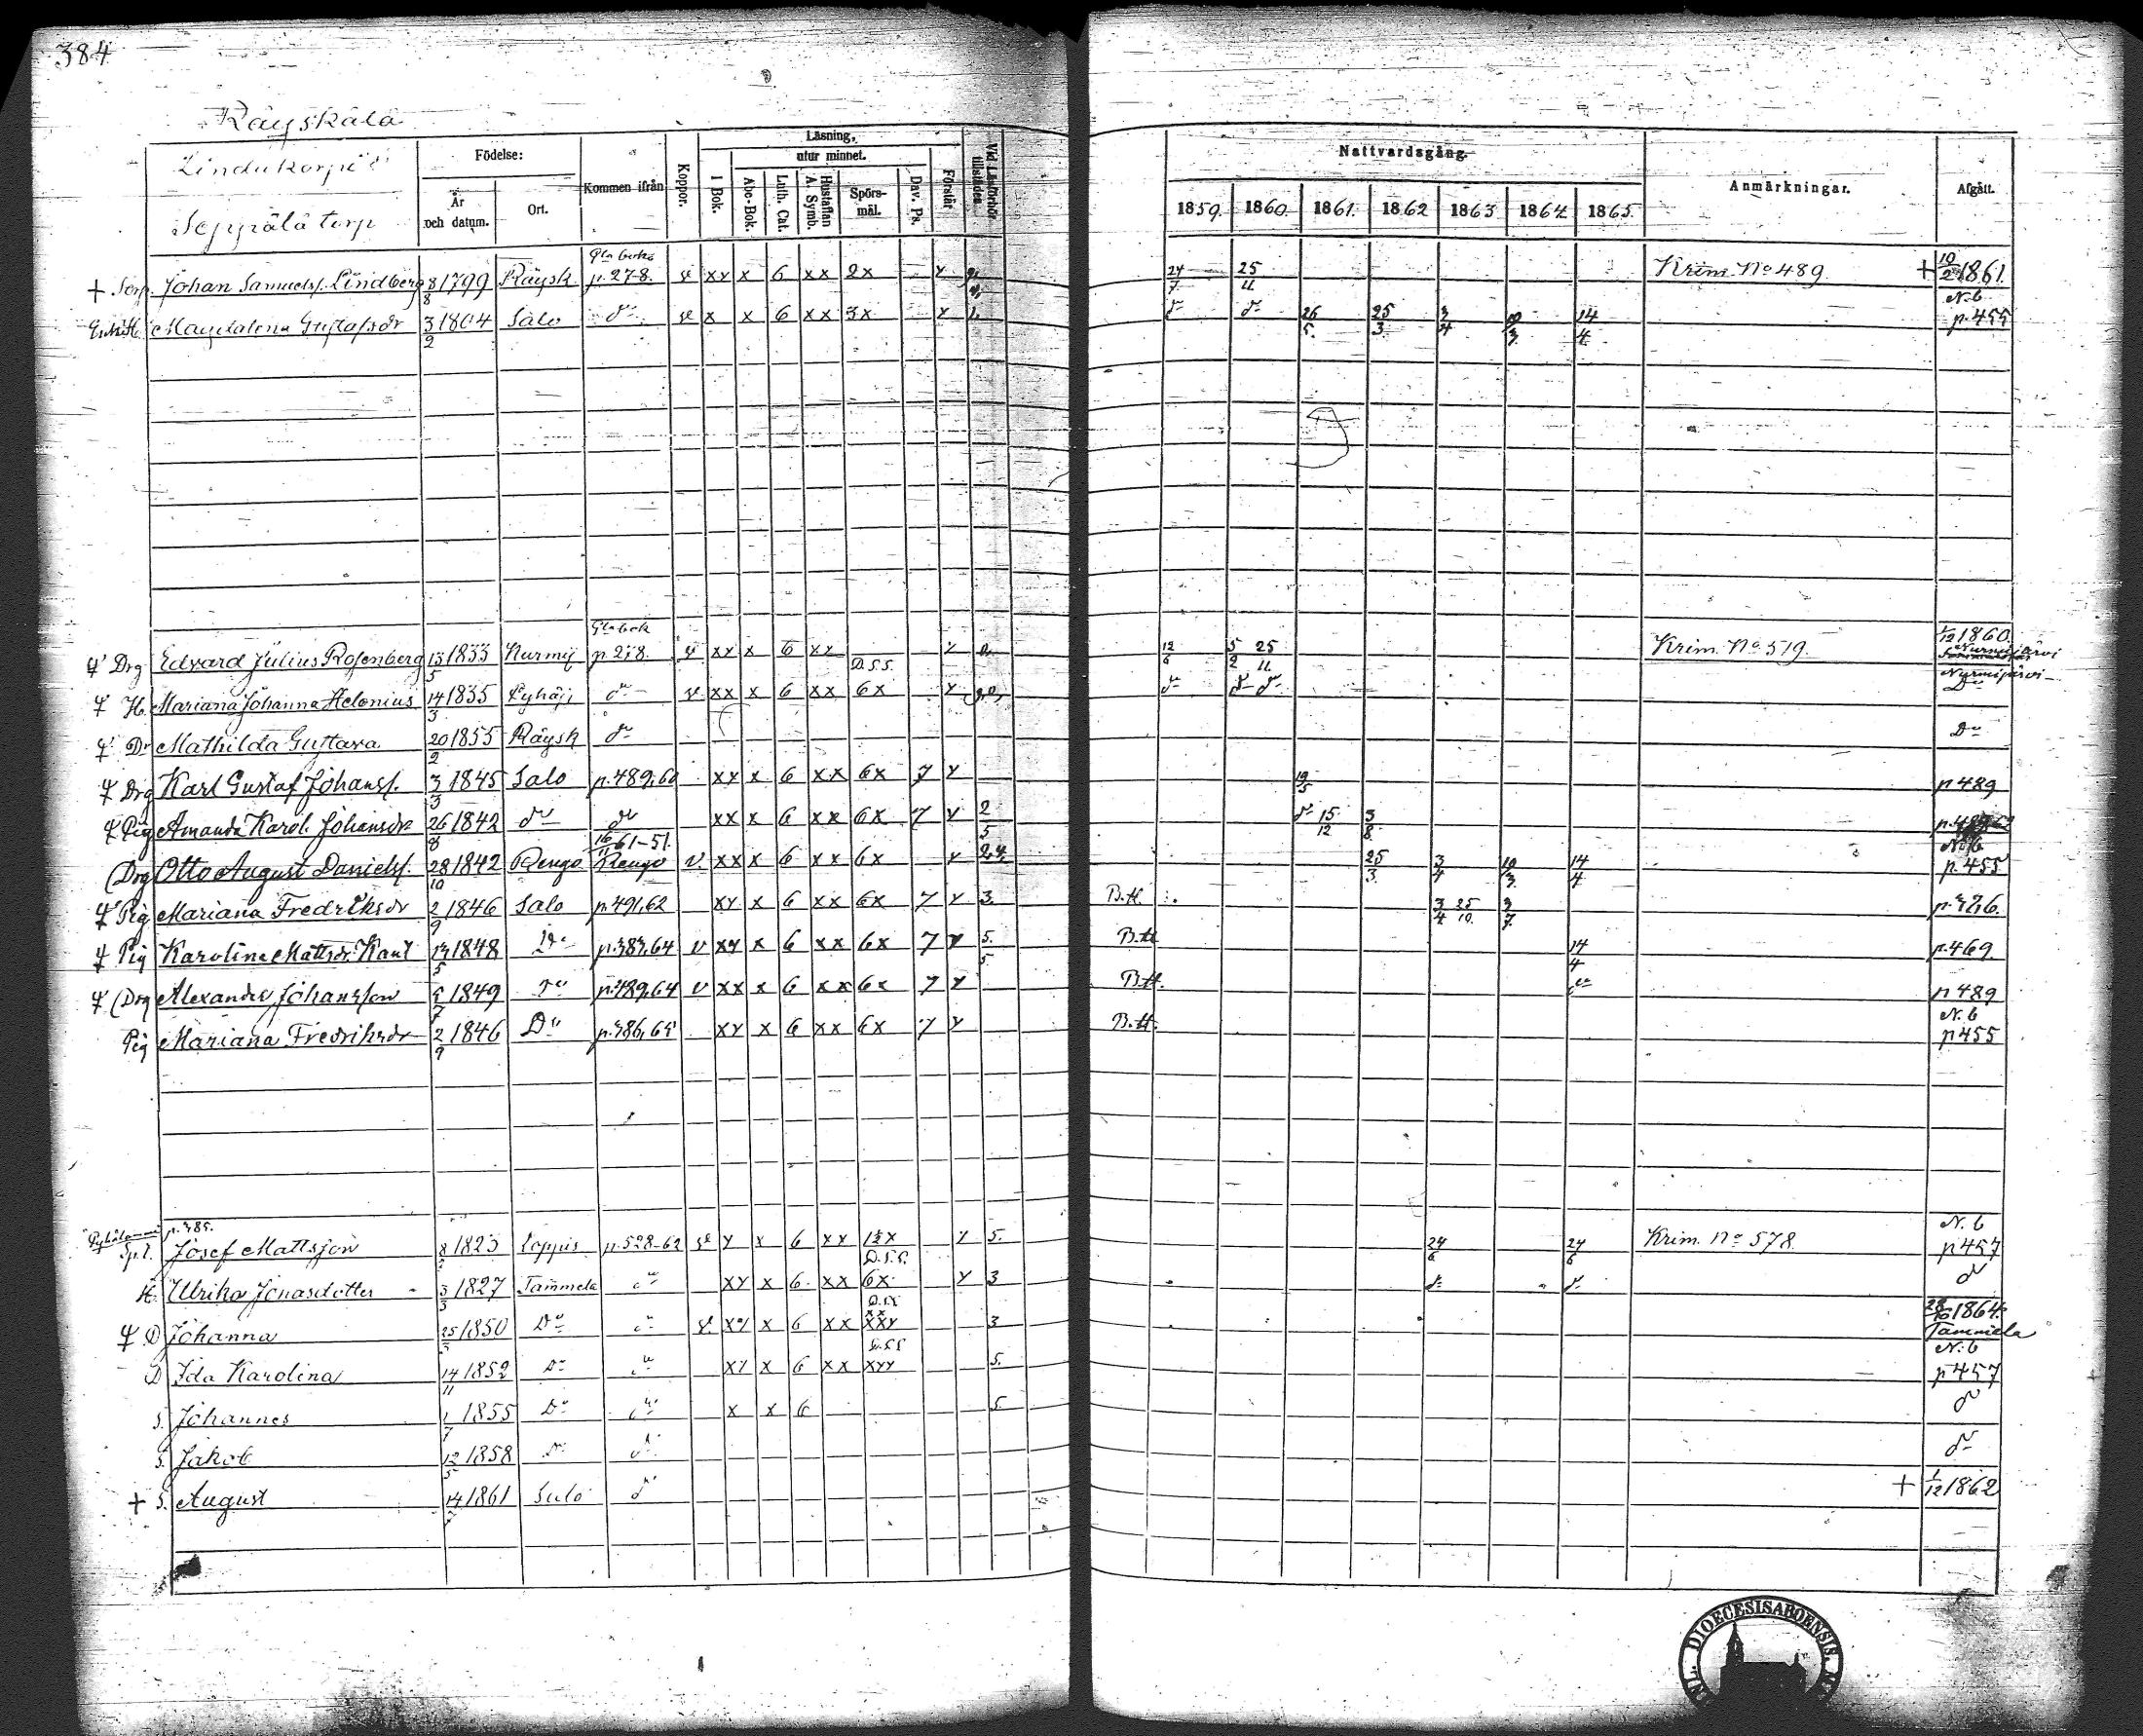 384
Räyskälä
Lindukorpi
Seppälä torp
Födelse:
År och datum.
Ort.
Kommen ifrån
Koppor.
Läsning,
utur minnet.
I Bok.
Abc-Bok.
Luth. Cat.
Hustaflan A. Symb.
Spörs-mål.
Dav. Ps.
Förstår
Vid Läsförhör tillstädes
Nattvardsgång.
1859. 1860. 1861. 1862 1863 1864 1865.
Anmärkningar.
Afgått.
Gla boks
+ Torp. Johan Samuelss. Lindberg 8/8 1799 Räysk. p. 278. v xx x 6 xx 2x y 24/7 25/11 Krim. No 489 + 10/2 1861.
N. 6
Enk. H. Magdalena Gustafsdr 3/2 1804 Salo do v x x 6 xx 3x y do do 26/5 25/3 3/4 14/4 p. 455
Gla bok
Drg Edvard Julius Rosenberg 13/5 1833 Nurmij p. 278. v xx x 6 xx y 12/6 5/2 25/11 Krim. No 519. 1/12 1860. Nurmijärvi
D.S.S.
H. Mariana Johanna Helenius 14/3 1835 Pyhäj. do v xx x 6 xx 6x y do do do Nurmijärvi Do
Dr Mathilda Gustava 20/2 1855 Räysk do Do
Drg Karl Gustaf Johanss. 3/3 1845 Salo p. 489,60 xx x 6 xx 6x 7 y 19/5 p 489
Pig Amanda Karol. Johansdr 26/8 1842 do do xx x 6 xx 6x 7 y 2/5 do 15/12 3/8
61-51. N. 6
Drg Otto August Daniels. 28/10 1842 Rengo Rengo v. xx x 6 xx 6x y 2,4 25/3 3/4 14/4 p. 455
Pig Mariana Fredriksdr 2/9 1846 Salo p. 491,62 xx x 6 xx 6x 7 y 3. B.H. 3/4 25/10 3/7
Pig Karolina Mattsdr. 1848 Do p. 383,64 v xx x 6 xx 6x 7 y 5. 5 B.H 14/4 p. 469.
(Drg Alexander Johansson 1849 Do p. 489,64 v xx x 6 xx 6x 7 y B.H. do p 489
N. 6
Pig Mariana Fredriksdr 2/9 1846 Do p. 386,65 xx x 6 xx 6x 7 y B.H. p 455
p. 385. N. 6
Josef Mattsson 1823 Loppis p. 528-62 v y x 6 xx y 5. 24/6 24/6 Krim. No 578. p 457
D.S.S.
H. Ulrika Jonasdotter 3/3 1827 Tammela do xy x 6 xx 6x y 3 do do do
28/10 1864.
D Johanna 25/3 1850 Do do v. xy x 6 xx xxy 3 Tammela
N. 6
D Ida Karolina 14/11 1852 Do do xy x 6 xx xyy 5. p 457
S. Johannes 1/7 1855 Do do x x 6 5 do
S. Jakob 12/5 1858 Do do do
+ S. August 14 1861 Salo do + 1/12 1862
DIOECESIS ABOENSIS